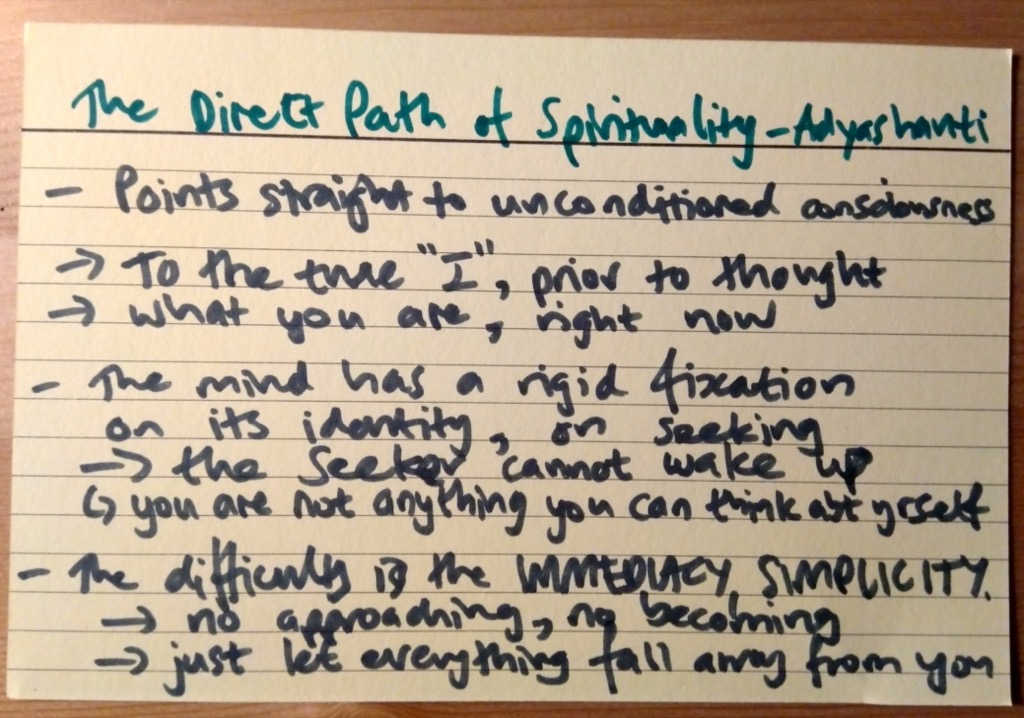 The Direct Path of Spirituality - Adyashanti
- Points straight to unconditioned consciousness
→ To the true "I", prior to thought
→ what you are, right now
- The mind has a rigid fixation
on its identity, on seeking
→ the seeker cannot wake up
↳ you are not anything you can think abt yrself
- The difficulty is the IMMEDIACY, SIMPLICITY.
→ no approaching, no becoming
→ just let everything fall away from you